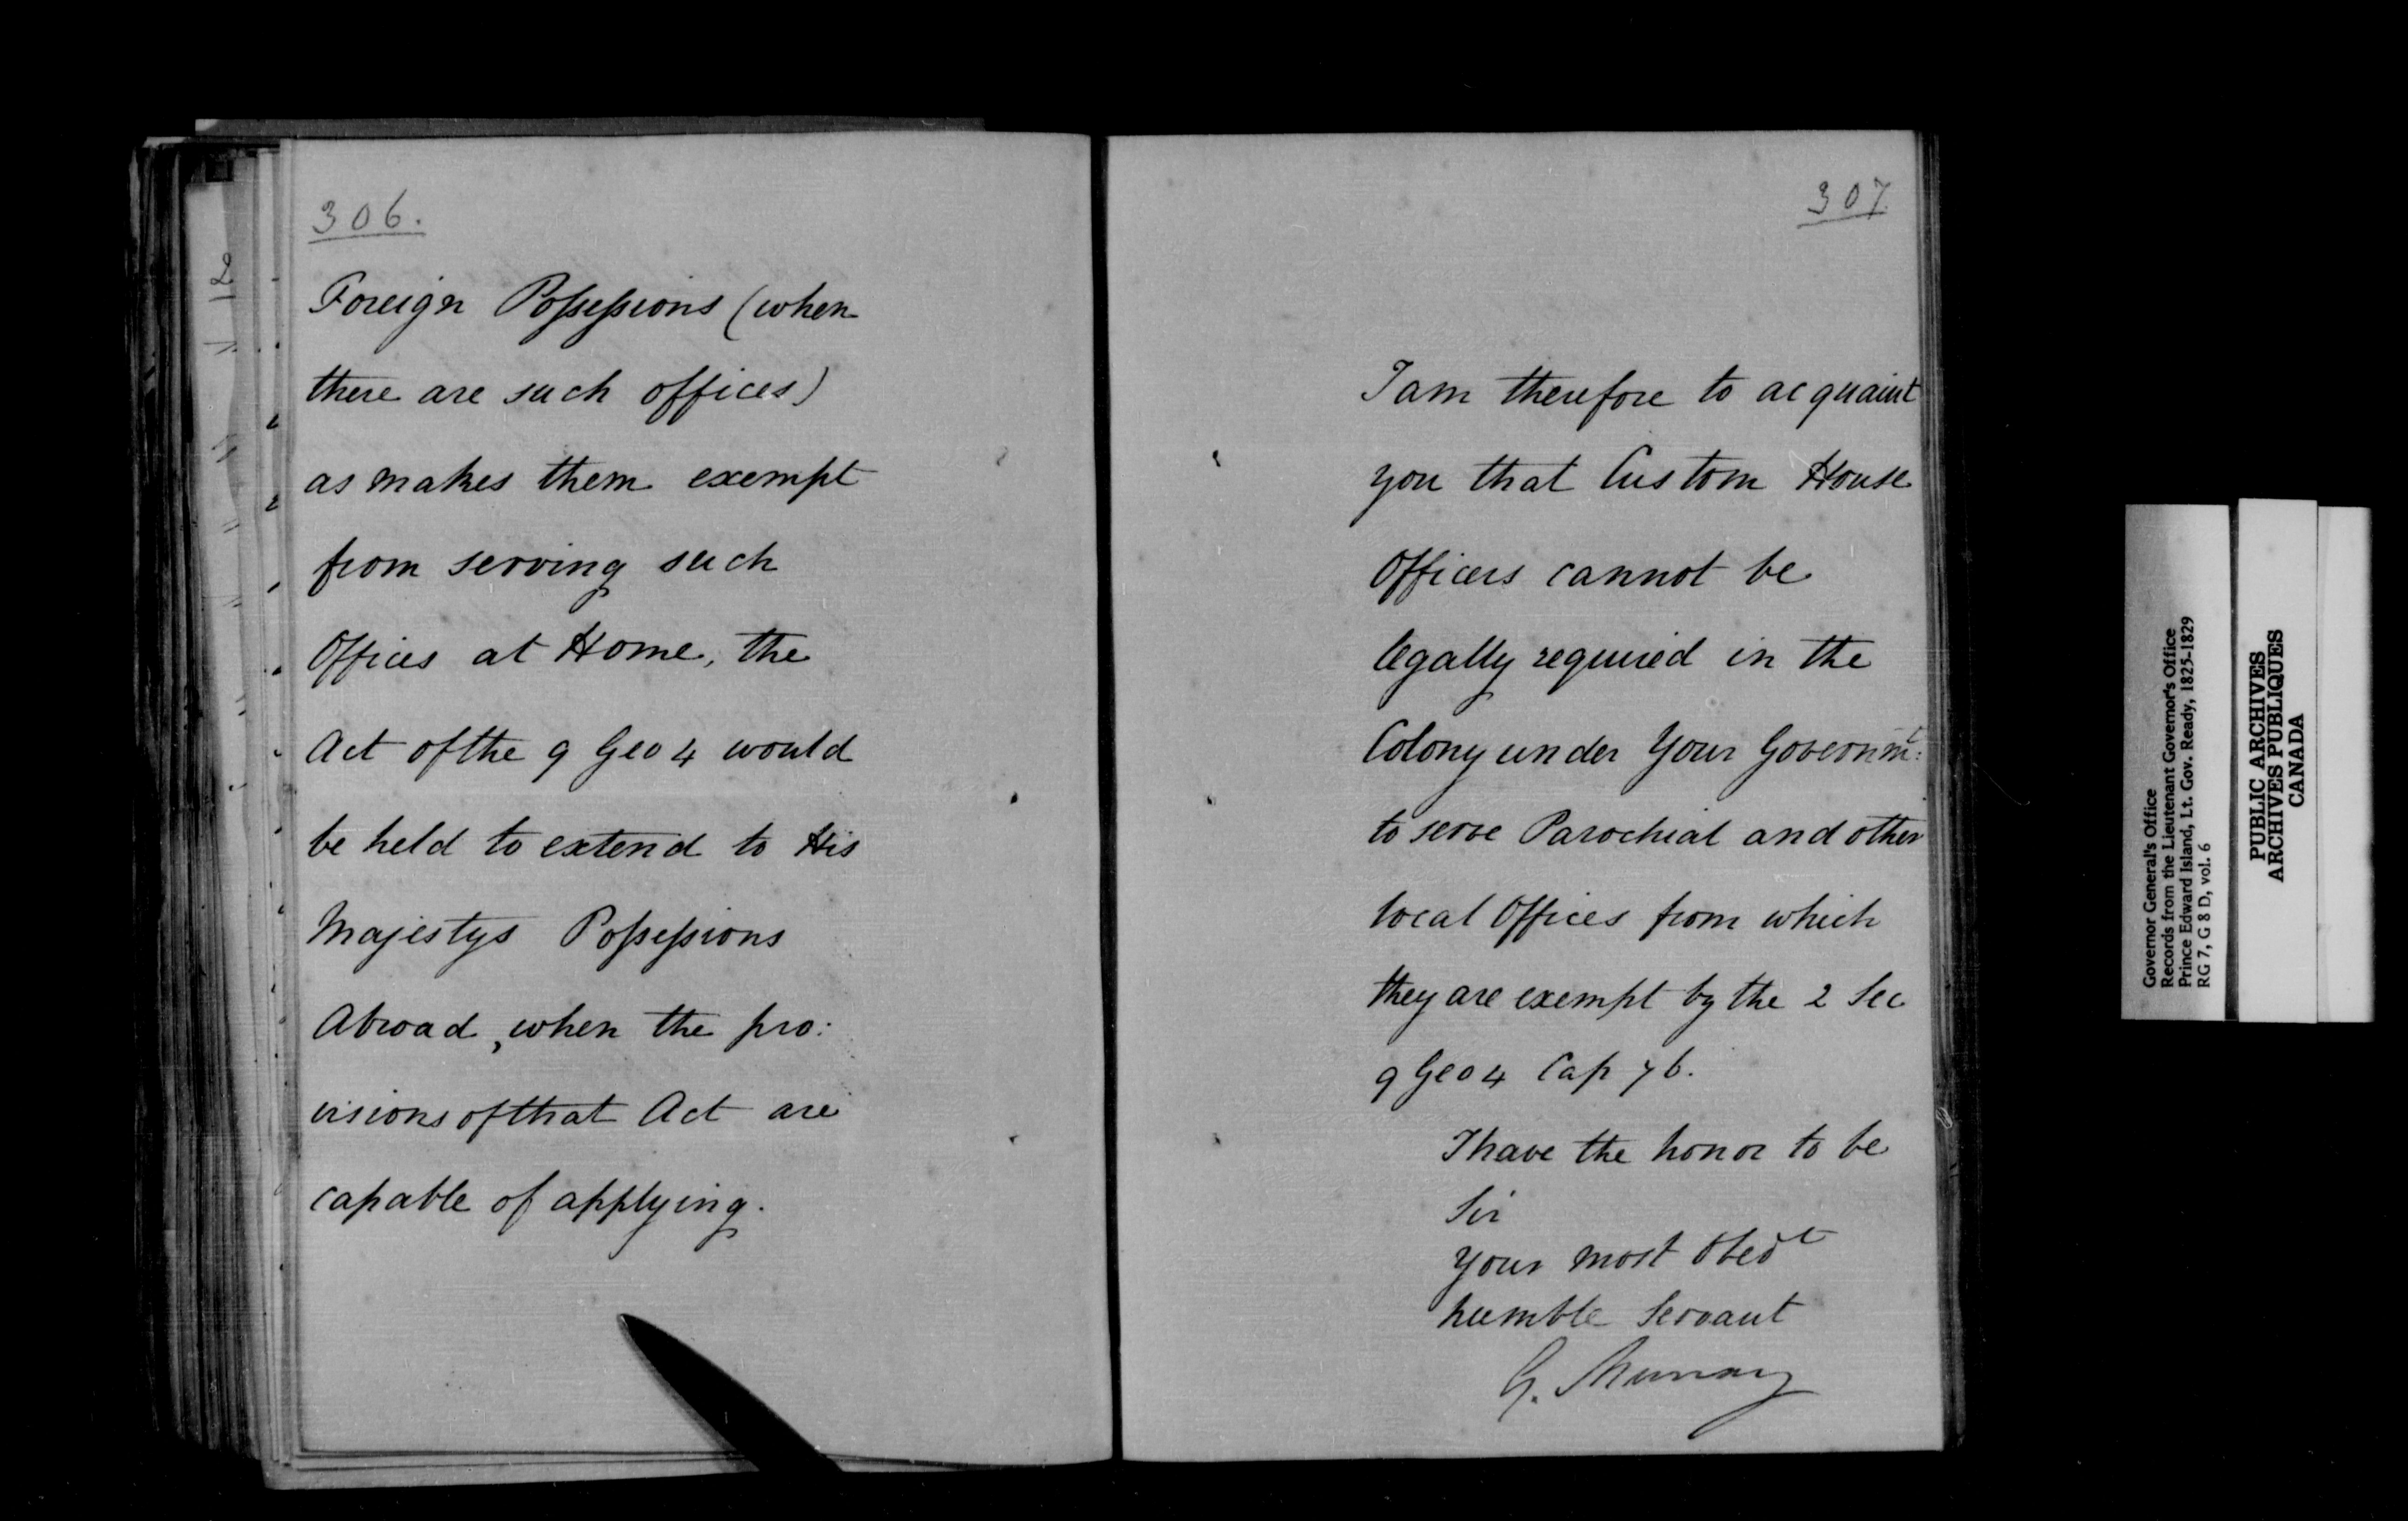 306.
Foreign Possessions (when
there are such offices)
as makes them exempt
from serving such
Offices at Home, the
Act of the 9 Geo 4 would
be held to extend to His
Majestys Possessions
Abroad, when the pro:
visions of that Act are
capable of applying.
307.
I am therefore to acquaint
you that Custom House
Officers cannot be
legally required in the
Colony under Your Governmt:
to serve Parochial and other
local Offices from which
they are exempt by the 2 Sec
9 Geo 4 Cap 76.
I have the honor to be
Sir
Your most Obedt
humble Servant
G. Murray
Governor General's Office
Records from the Lieutenant Governor's Office
Prince Edward Island, Lt. Gov. Ready, 1825-1829
RG 7, G 8 D, vol. 6
PUBLIC ARCHIVES
ARCHIVES PUBLIQUES
CANADA